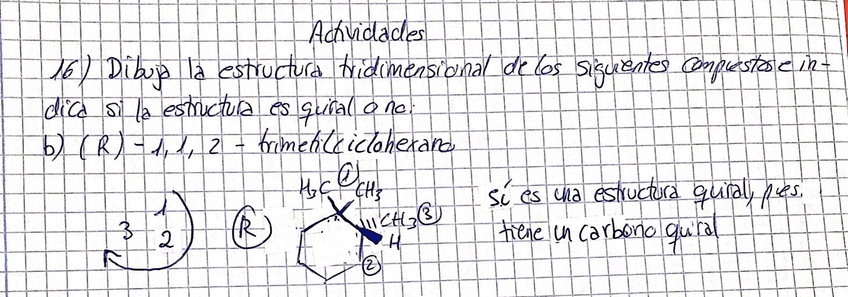 Actividades
16) Dibuja la estructura tridimensional de los siguientes compuestos e in-
dica si la estructura es quiral o no:
b) (R) - 1, 1, 2 - trimetilciclohexano
1
3 2
R
H₃C 1 CH₃
CH₃ 3
H
2
Sí es una estructura quiral, pues
tiene un carbono quiral